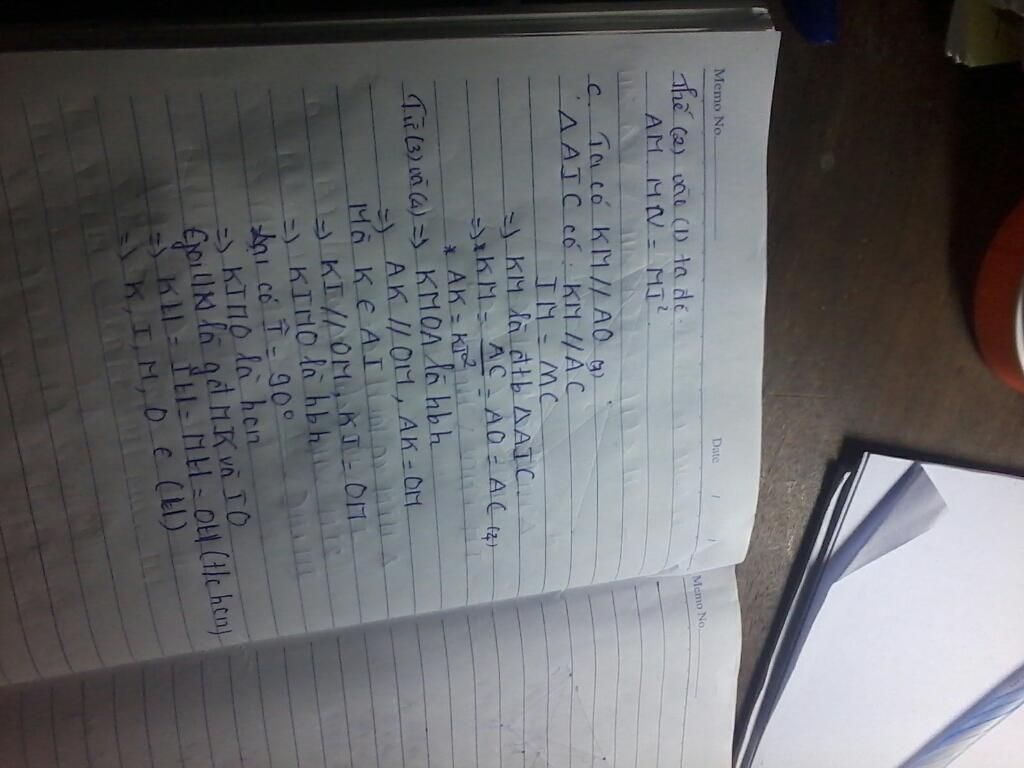 Memo No.
Date / /
Thế (2) vào (1) ta đc:
AM. MN = MI²
c. Ta có KM // AO (3)
ΔAIC có: KM // AC
IM = MC
=> KM là đtb ΔAIC
=> * KM = AC/2 = AO = AC (4)
* AK = KI
Từ (3) và (4) => KMOA là hbh
=> AK // OM, AK = OM
Mà K ∈ AI
=> KI // OM, KI = OM
=> KIMO là hbh
Lại có Î = 90°
=> KIMO là hcn
Gọi H là gđ MK và IO
=> KH = IH = MH = OH (t/c hcn)
=> K, I, M, O ∈ (H)
Memo No.